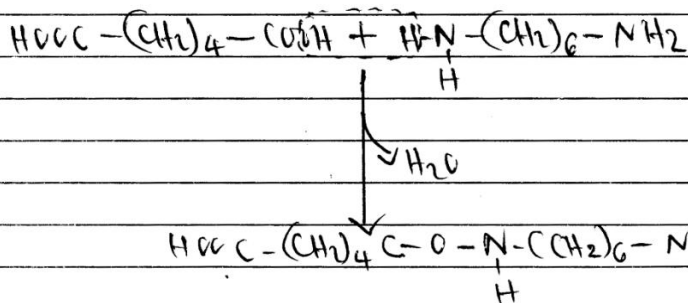 HOOC-(CH2)4-COOH + H-N-(CH2)6-NH2
H
H2O
HOOC-(CH2)4 C-O-N-(CH2)6-N
H